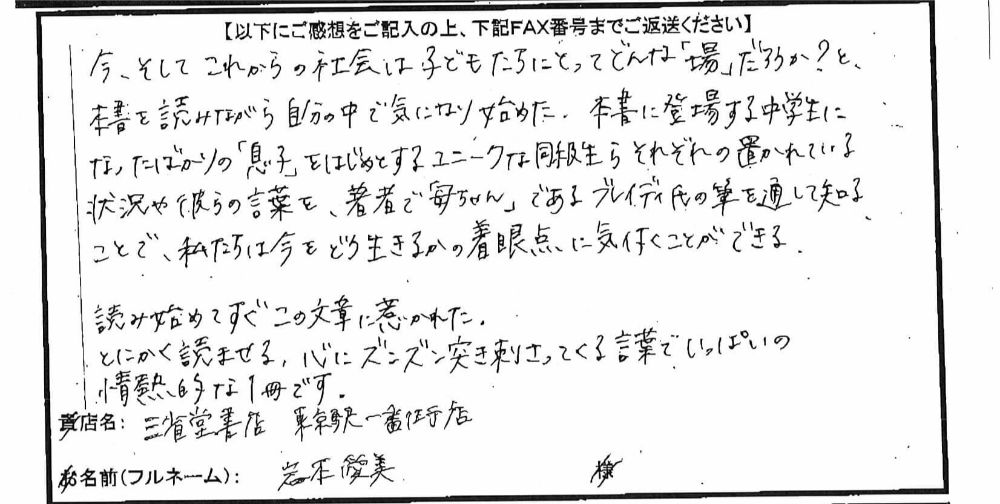 【以下にご感想をご記入の上、下記FAX番号までご返送ください】
今、そしてこれからの社会は子どもたちにとってどんな「場」だろうか?と、
本書を読みながら自分の中で気になり始めた。本書に登場する中学生に
なったばかりの「息子」をはじめとするユニークな同級生らそれぞれの置かれている
状況や彼らの言葉を、著者で「母ちゃん」であるブレイディ氏の筆を通して知る
ことで、私たちは今をどう生きるかの着眼点に気付くことができる。
読み始めてすぐこの文章に惹かれた。
とにかく読ませる、心にズンズン突き刺さってくる言葉でいっぱいの
情熱的な1冊です。
貴店名: 三省堂書店 東京駅一番街店
お名前(フルネーム): 岩本愛美 様